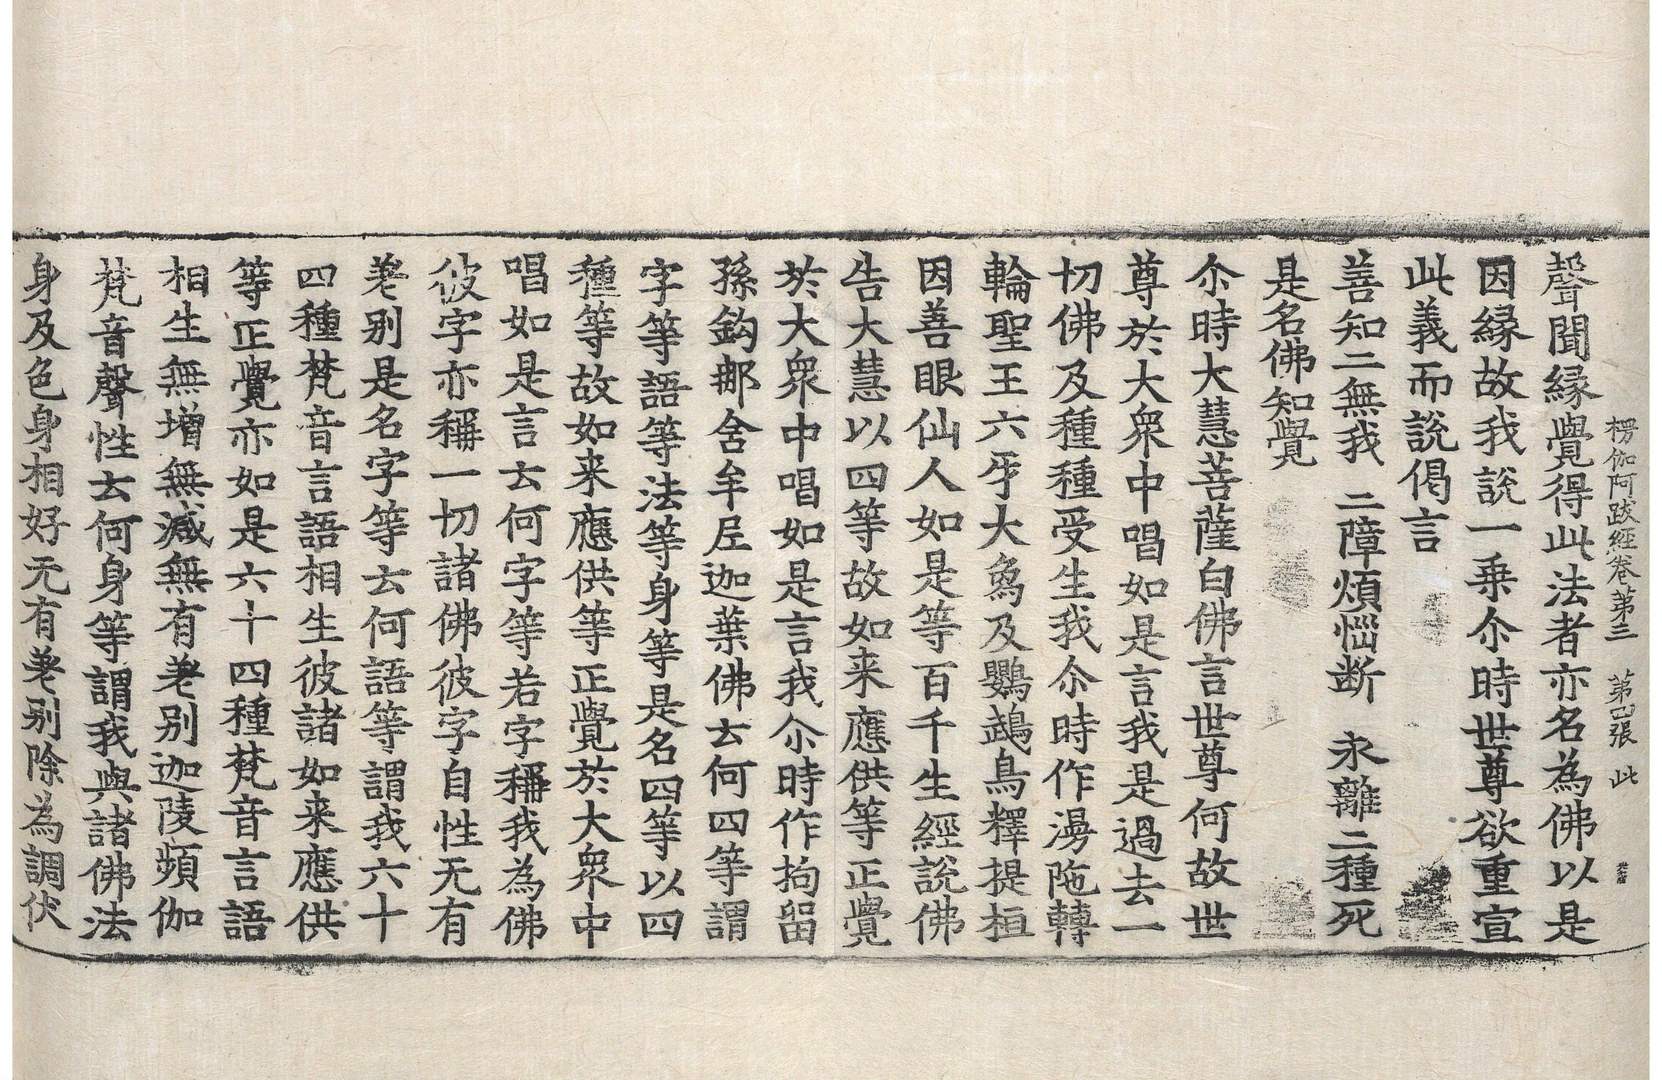 楞伽阿跋經卷第三 第四張 此
聲聞緣覺得此法者亦名為佛以是
因緣故我說一乘尒時世尊欲重宣
此義而說偈言
善知二無我 二障煩惱断 永離二種死
是名佛知覺
尒時大慧菩薩白佛言世尊何故世
尊於大衆中唱如是言我是過去一
切佛及種種受生我尒時作漫陁轉
輪聖王六牙大象及鸚鵡鳥釋提桓
因善眼仙人如是等百千生經說佛
告大慧以四等故如来應供等正覺
於大衆中唱如是言我尒時作拘留
孫鉤那舍牟尼迦葉佛云何四等謂
字等語等法等身等是名四等以四
種等故如来應供等正覺於大衆中
唱如是言云何字等若字稱我為佛
彼字亦稱一切諸佛彼字自性无有
差别是名字等云何語等謂我六十
四種梵音言語相生彼諸如来應供
等正覺亦如是六十四種梵音言語
相生無增無減無有差别迦陵頻伽
梵音聲性云何身等謂我與諸佛法
身及色身相好无有差别除為調伏